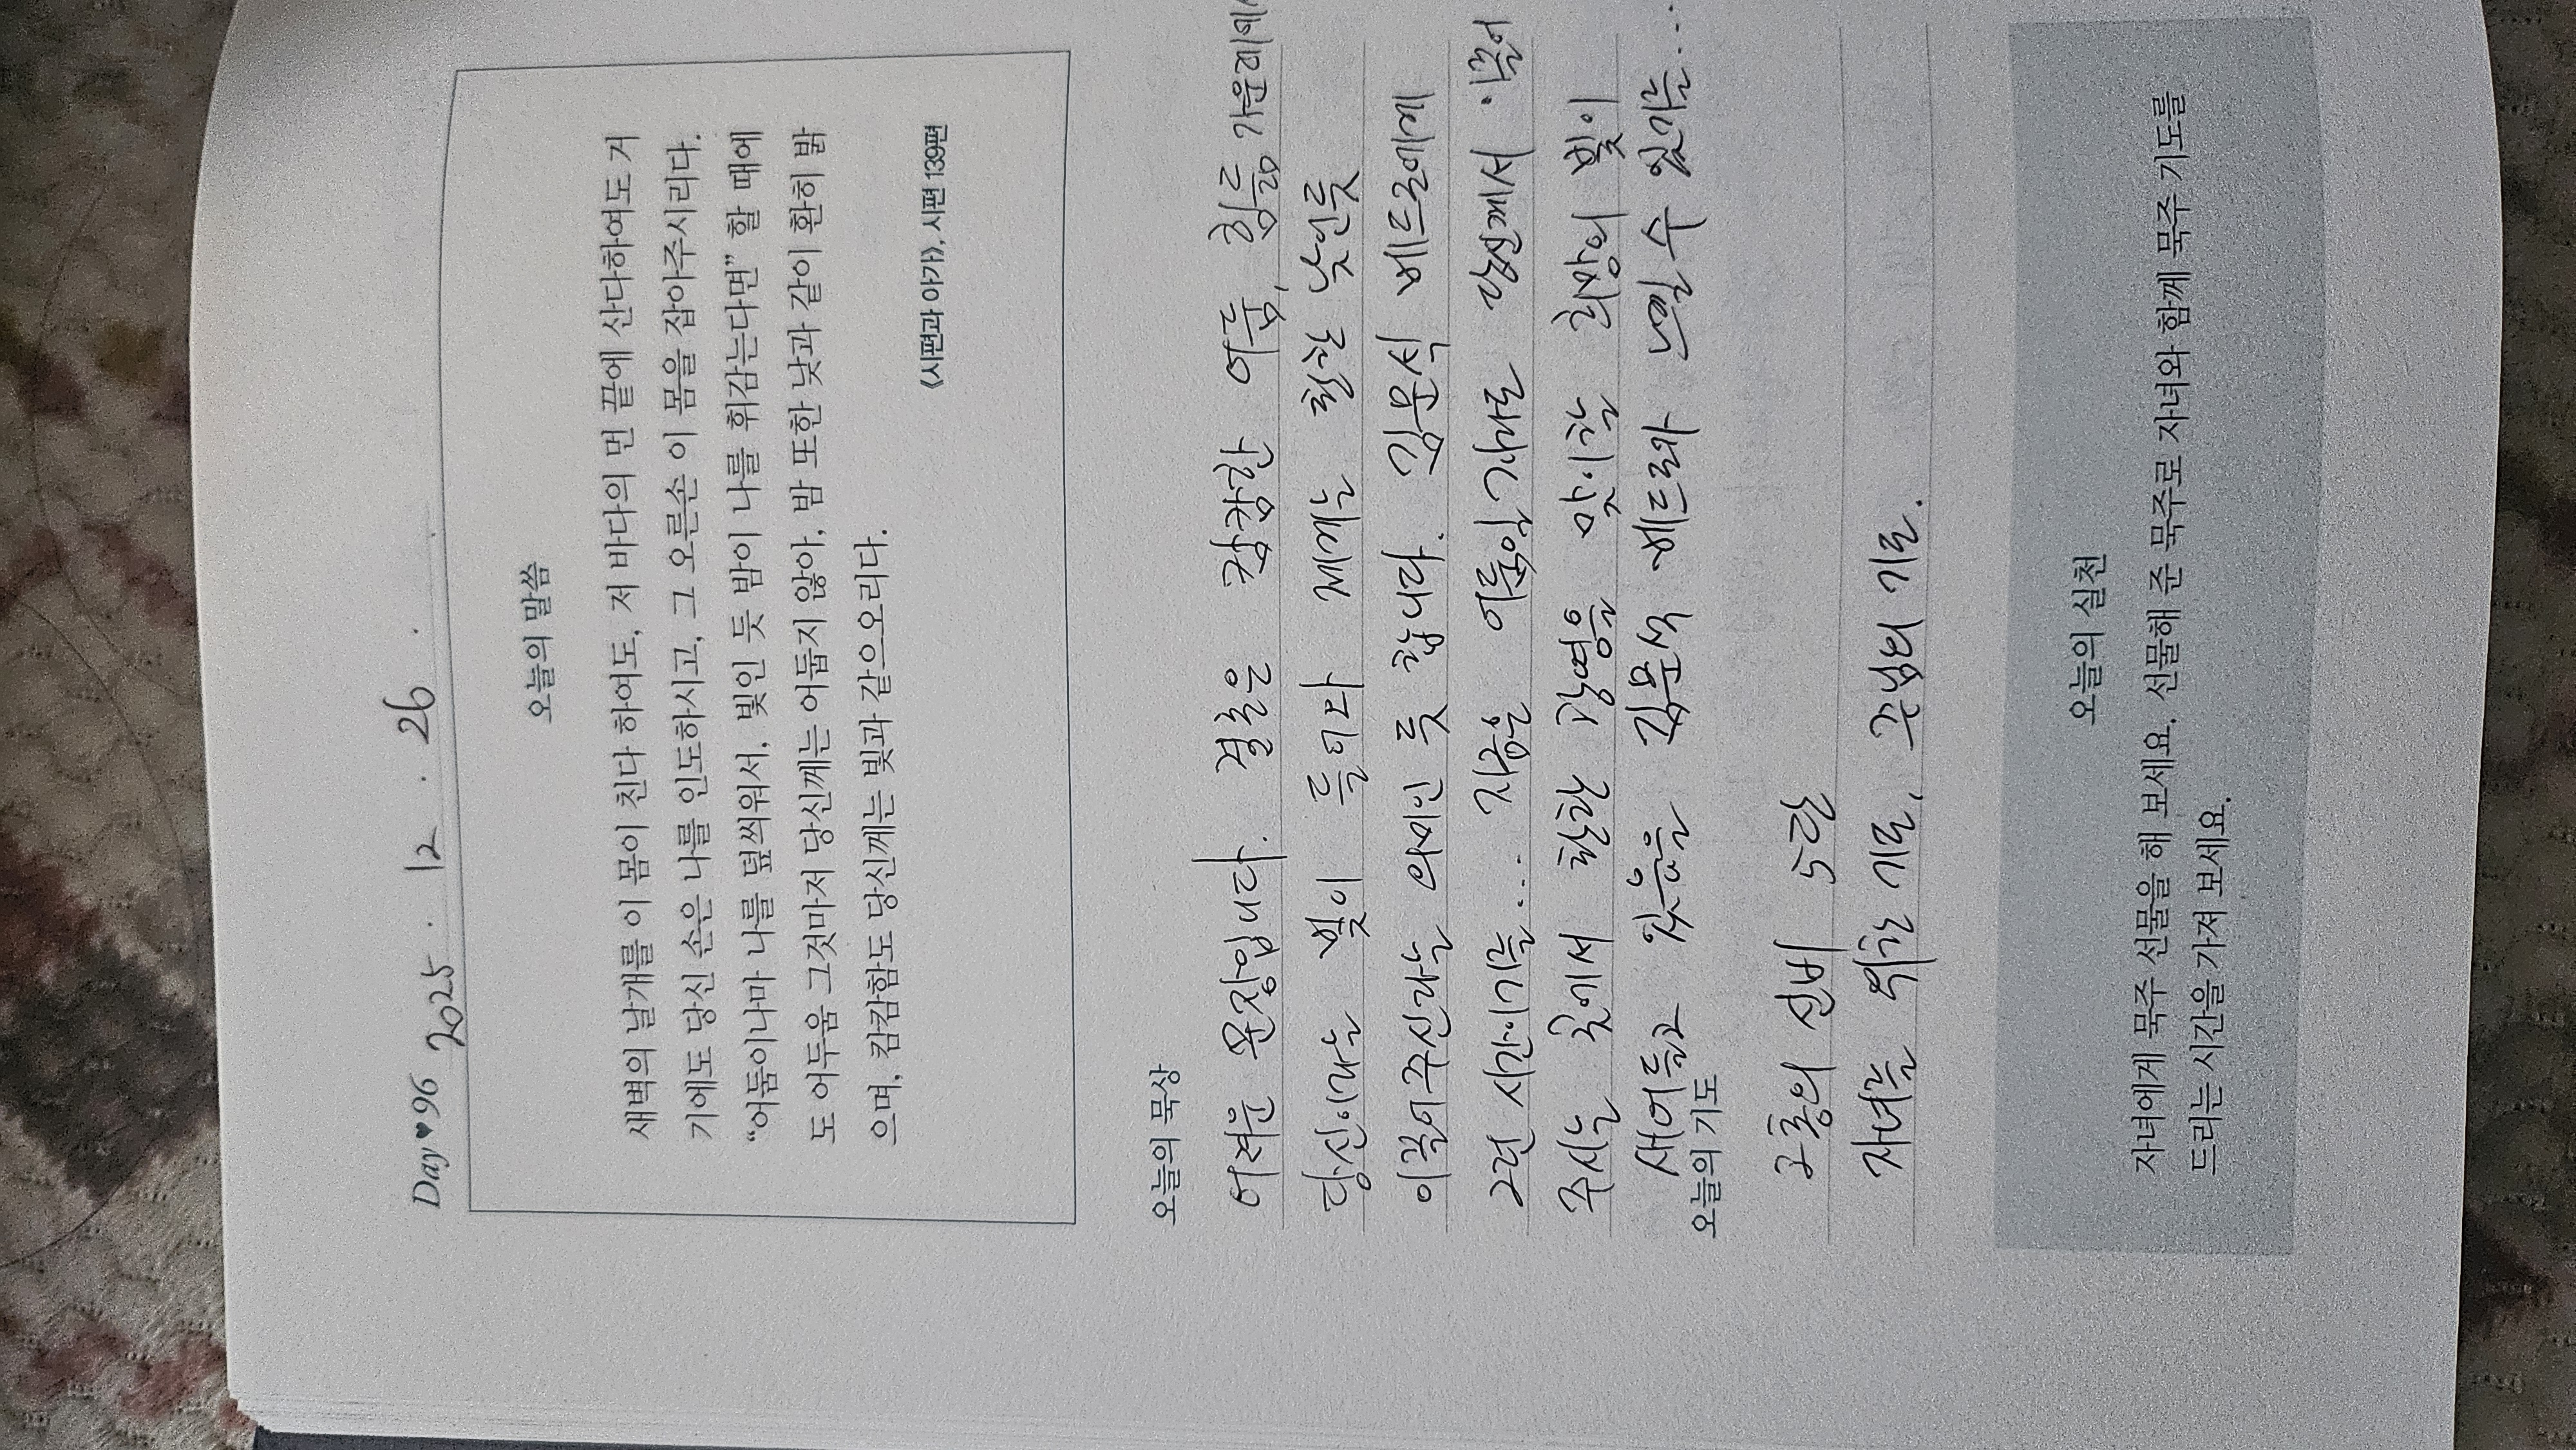 Day♥96 2025 . 12 . 26 .
오늘의 말씀
새벽의 날개를 이 몸이 친다 하여도, 저 바다의 먼 끝에 산다하여도 거
기에도 당신 손은 나를 인도하시고, 그 오른손 이 몸을 잡아주시리다.
“어둠이나마 나를 덮씌워서, 빛인 듯 밤이 나를 휘감는다면” 할 때에
도 어두움 그것마저 당신께는 어둡지 않아, 밤 또한 낮과 같이 환히 밝
으며, 캄캄함도 당신께는 빛과 같으오리다.
《시편과 아가》, 시편 139편
오늘의 묵상
어려운 문장입니다. 결론은 캄캄한 어둠, 힘듦 가운데에서
당신이라는 빛이 들어와 제게는 환한 낮인듯
이끌어주신다는 의미인 듯 합니다. 김문식 베드로에게
2년 시간이기를... 지금은 어둠일지라도 당신께서 이끌어
주시는 곳에서 환한 광명을 맞이할 희망의 빛이
새어들고 있음을 김문식 베드로와 느낄 수 있기를...
오늘의 기도
고통의 신비 5단
자녀를 위한 기도, 주님의 기도.
오늘의 실천
자녀에게 묵주 선물을 해 보세요. 선물해 준 묵주로 자녀와 함께 묵주 기도를
드리는 시간을 가져 보세요.